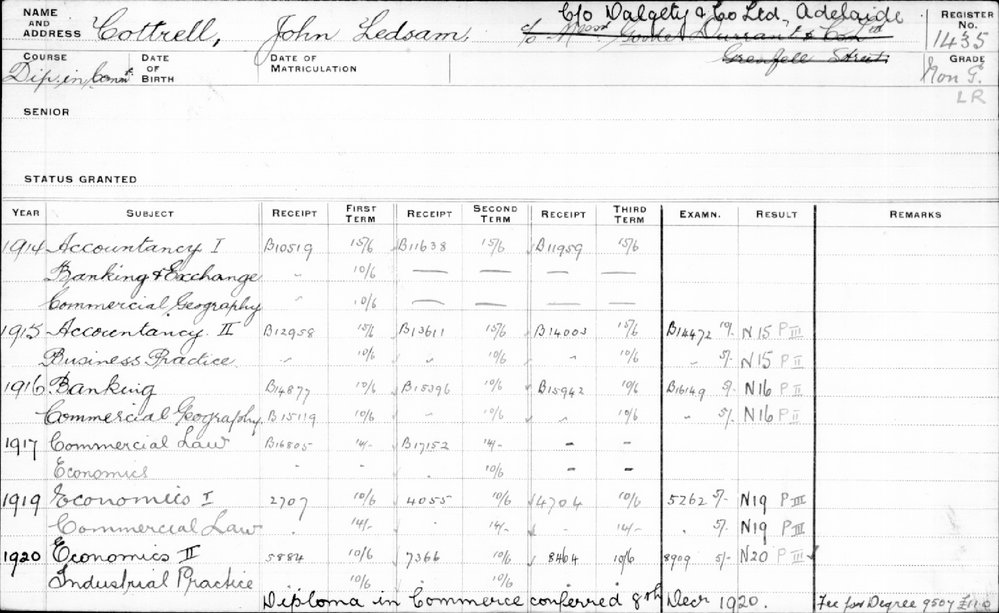 NAME AND ADDRESS Cottrell, John Ledsam, C/o Dalgety & Co Ltd, Adelaide REGISTER No. 1435
c/o Messrs Goode Durrant & Co Ltd
Grenfell Street
COURSE Dip. in Comm. DATE OF BIRTH DATE OF MATRICULATION GRADE Non G.
LR
SENIOR
STATUS GRANTED
YEAR SUBJECT RECEIPT FIRST TERM RECEIPT SECOND TERM RECEIPT THIRD TERM EXAMN. RESULT REMARKS
1914 Accountancy I B10519 15/6 B11638 15/6 B11959 15/6
Banking & Exchange " 10/6 — — — —
Commercial Geography " 10/6 — — — —
1915 Accountancy II B12958 15/6 B13611 15/6 B14003 15/6 B14472 10/- N15 P III
Business Practice " 10/6 " 10/6 " 10/6 " 5/- N15 P II
1916 Banking B14877 10/6 B15396 10/6 B15942 10/6 B16149 5/- N16 P II
Commercial Geography B15119 10/6 " 10/6 " 10/6 " 5/- N16 P II
1917 Commercial Law B16805 14/- B17152 14/- - -
Economics - - . 10/6 - -
1919 Economics I 2707 10/6 4055 10/6 4704 10/6 5262 5/- N19 P III
Commercial Law . 14/- . 14/- . 14/- . 5/- N19 P III
1920 Economics II 5884 10/6 7366 10/6 8464 10/6 8909 5/- N20 P III
Industrial Practice 10/6 10/6
Diploma in Commerce conferred 8th Decr 1920. Fee for Degree 9507